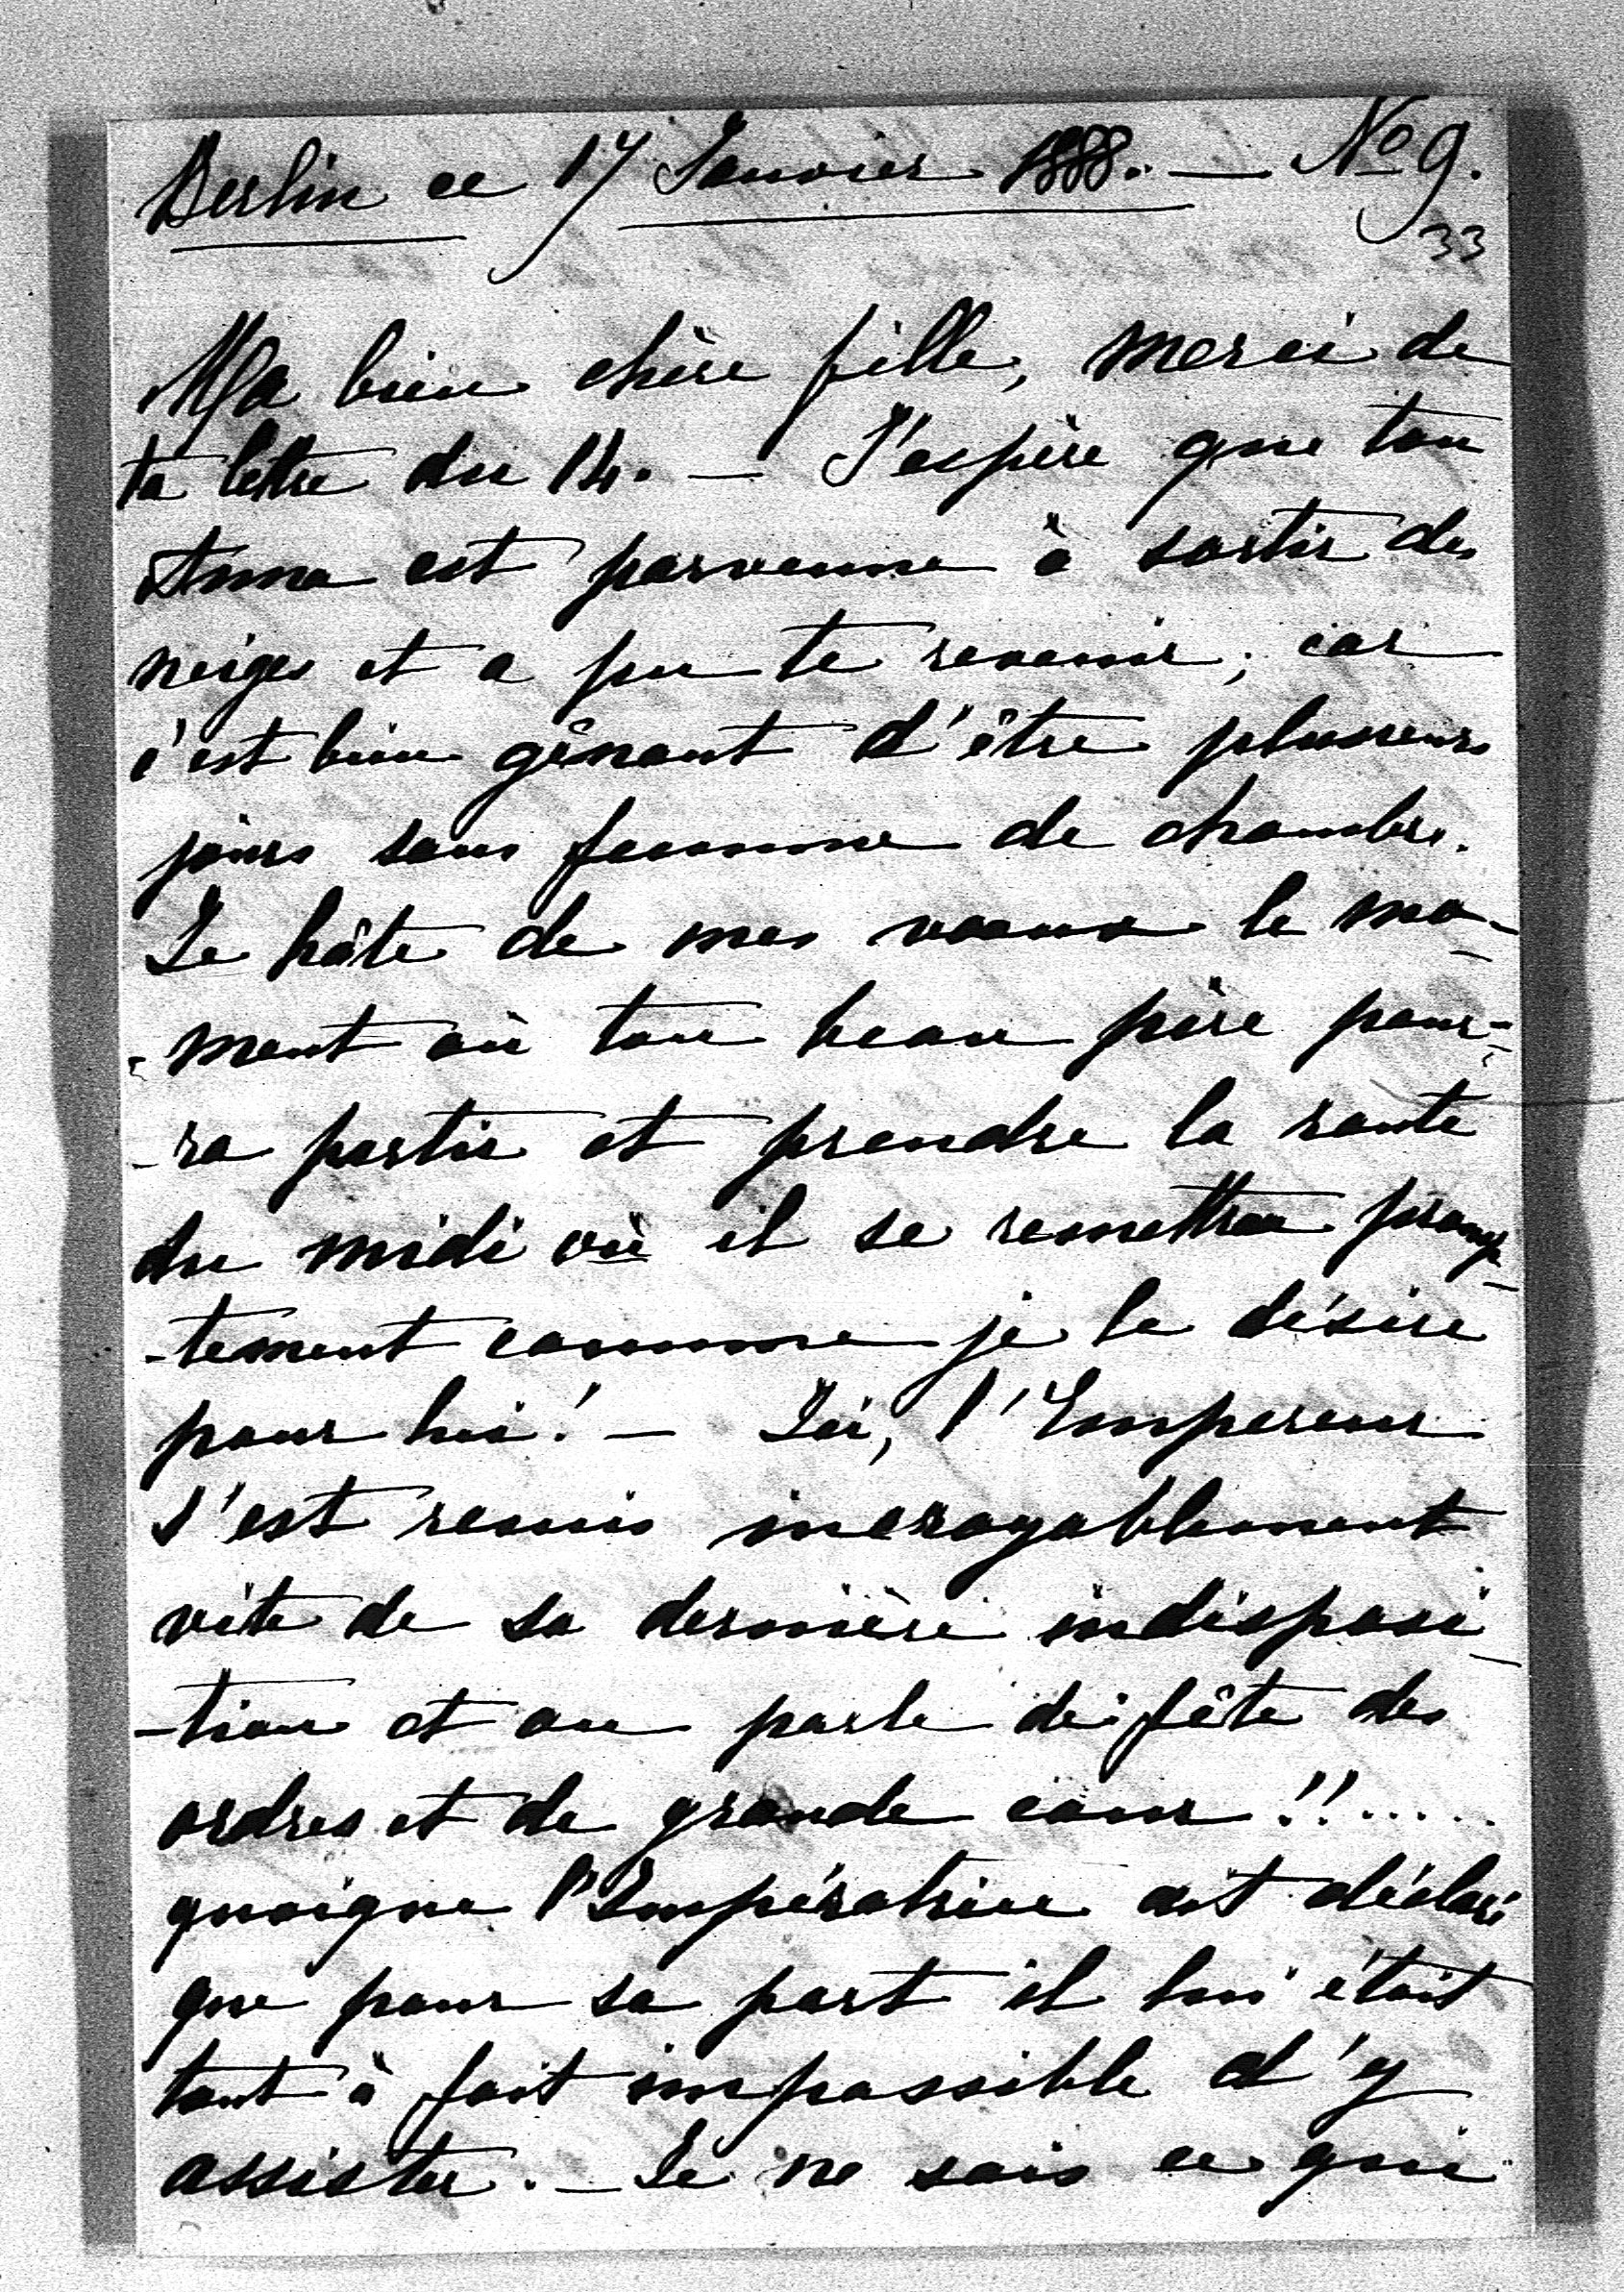 Berlin ce 17 Janvier 1888. — No 9.
33
Ma bien chère fille, merci de
ta lettre du 14. — J'espère que ton
Anna est parvenue à sortir des
neiges et a pu te revenir; car
c'est bien gênant d'être plusieurs
jours sans femme de chambre.
Je hâte de mes vœux le mo-
-ment où ton beau père pour-
-ra partir et prendre la route
du midi où il se remettra promp-
-tement comme je le désire
pour lui! — Ici, l'Empereur
s'est remis incroyablement
vite de sa dernière indisposi-
-tion et on parle de fête des
ordres et de grande cour!!.....
quoique l'Impératrice ait déclaré
que pour sa part il lui était
tout à fait impossible d'y
assister. — Je ne sais ce qui